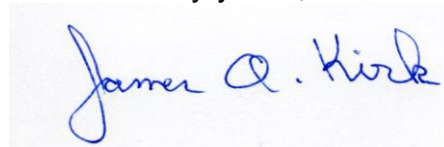 James A. Kirk